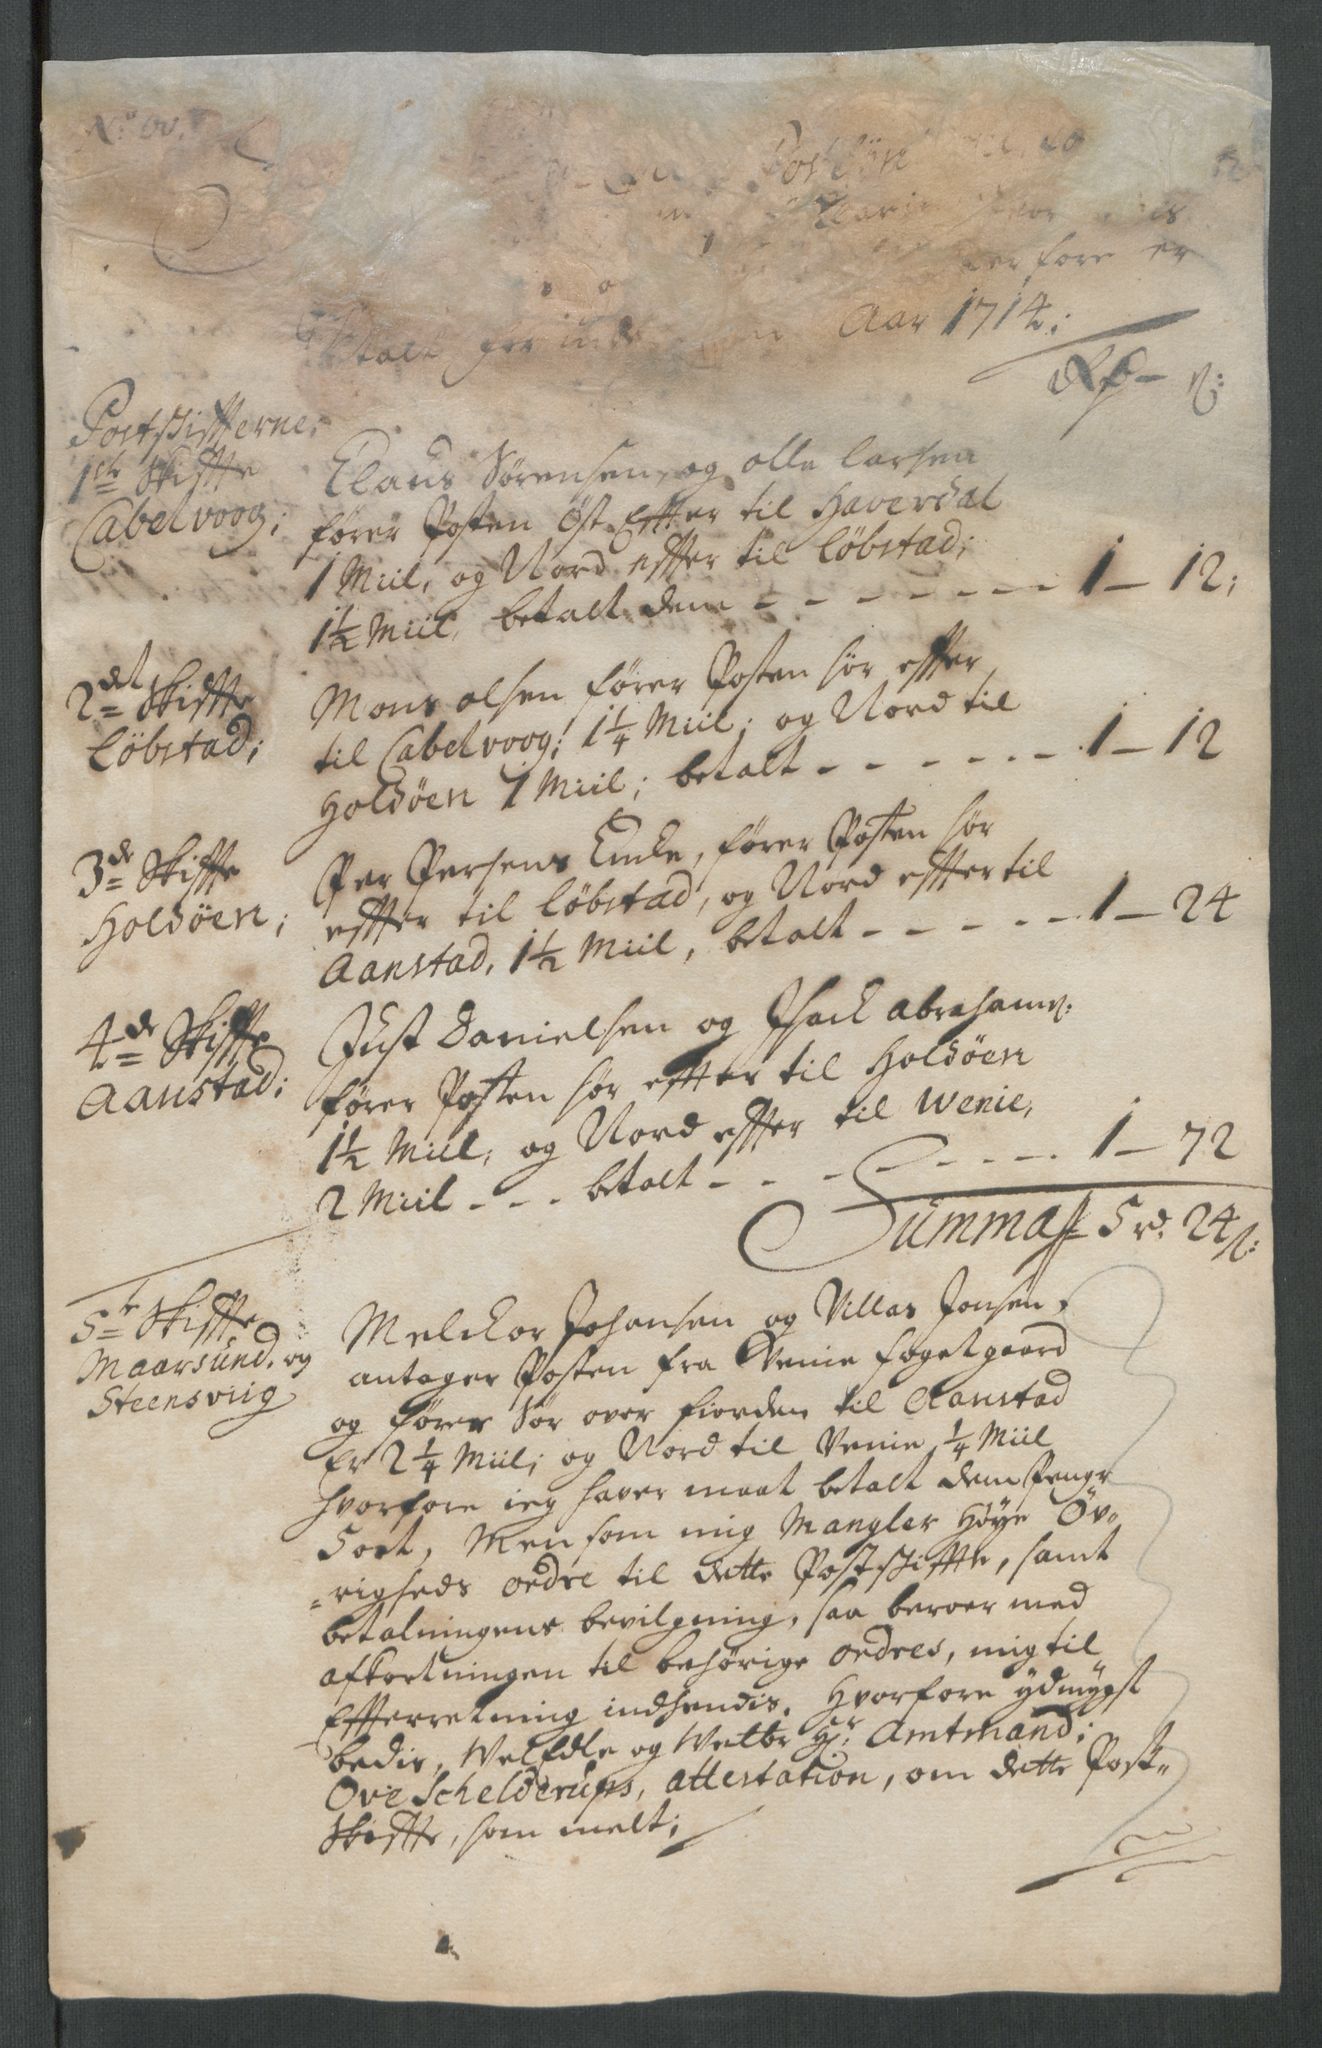 No
Aar 1714;
Rd — s:
Postskiffterne;
1ste Skiffte
Cabelvoog;
Claus Sørensen, og olle larsen
fører Posten Øst Effter til Haversal
1 Miil, og Nord effter til Løbstad;
1½ Miil, betalt dem - - - - - - - 1 — 12;
2det Skiffte
Løbstad;
Mons olsen fører Posten sør effter
til Cabelvoog; 1¼ Miil; og Nord til
Holdøen 1 Miil; betalt - - - - - - 1 — 12
3de Skiffte
Holdøen;
Per Persens Encke, fører Posten sør
effter til Løbstad, og Nord effter til
Aanstad, 1½ Miil, betalt - - - - - 1 — 24
4de Skiffte
Aanstad;
Just Danielsen og Isack abrahams:
fører Posten sør effter til Holdøen
1½ Miil, og Nord effter til Wenie,
2 Miil - - - betalt - - - - - - - 1 — 72
Summa 5 rd. 24 s:
5te Skiffte
Maarsund, og
Steensviig
Melckor Johansen og Villas Jonsen,
antager Posten fra Wenie fogetgaard
og fører Sør over fiorden til Aanstad
Er 2¼ Miil; og Nord til Venie ¼ Miil
hvorfore ieg haver maat betalt dem Penge
5 ort, Men som mig Mangler Høye Øv-
-righeds ordre til dette Postskiffte, samt
betalningens bevilgning, saa beroer med
afkortningen til behørige ordres, mig til
Effterretning indhendis. Hvorfore ydmygst
bedis, WelEdle og Welbr Hr. Amtmand;
Ove Schelderups, attestation, om dette Post-
Skiffte, som melt;